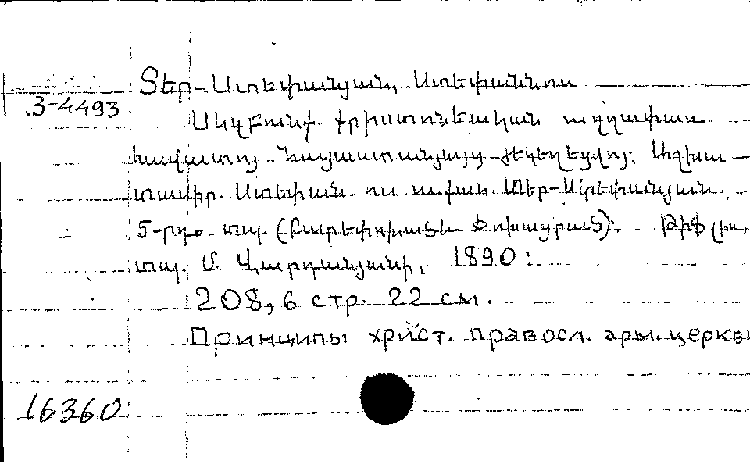 Տեր-Ստեփանյան, Ստեփաննոս
3-4493
Սկզբունք քրիստոնեական ուղղափառ
հավատոյ Հայաստանյայց եկեղեցվոյ. Աշխա-
տասիր. Ստեփան. ոս ավագ. Տեր-Ստեփանյան.
5-րդ. տպ. (Բարեփոխած և Փոխադրած). Թիֆլիս,
տպ. Մ. Վարդանյանի, 1890:
208, 6 стр. 22 см.
Принципы христ. правосл. арм. церкви
16360